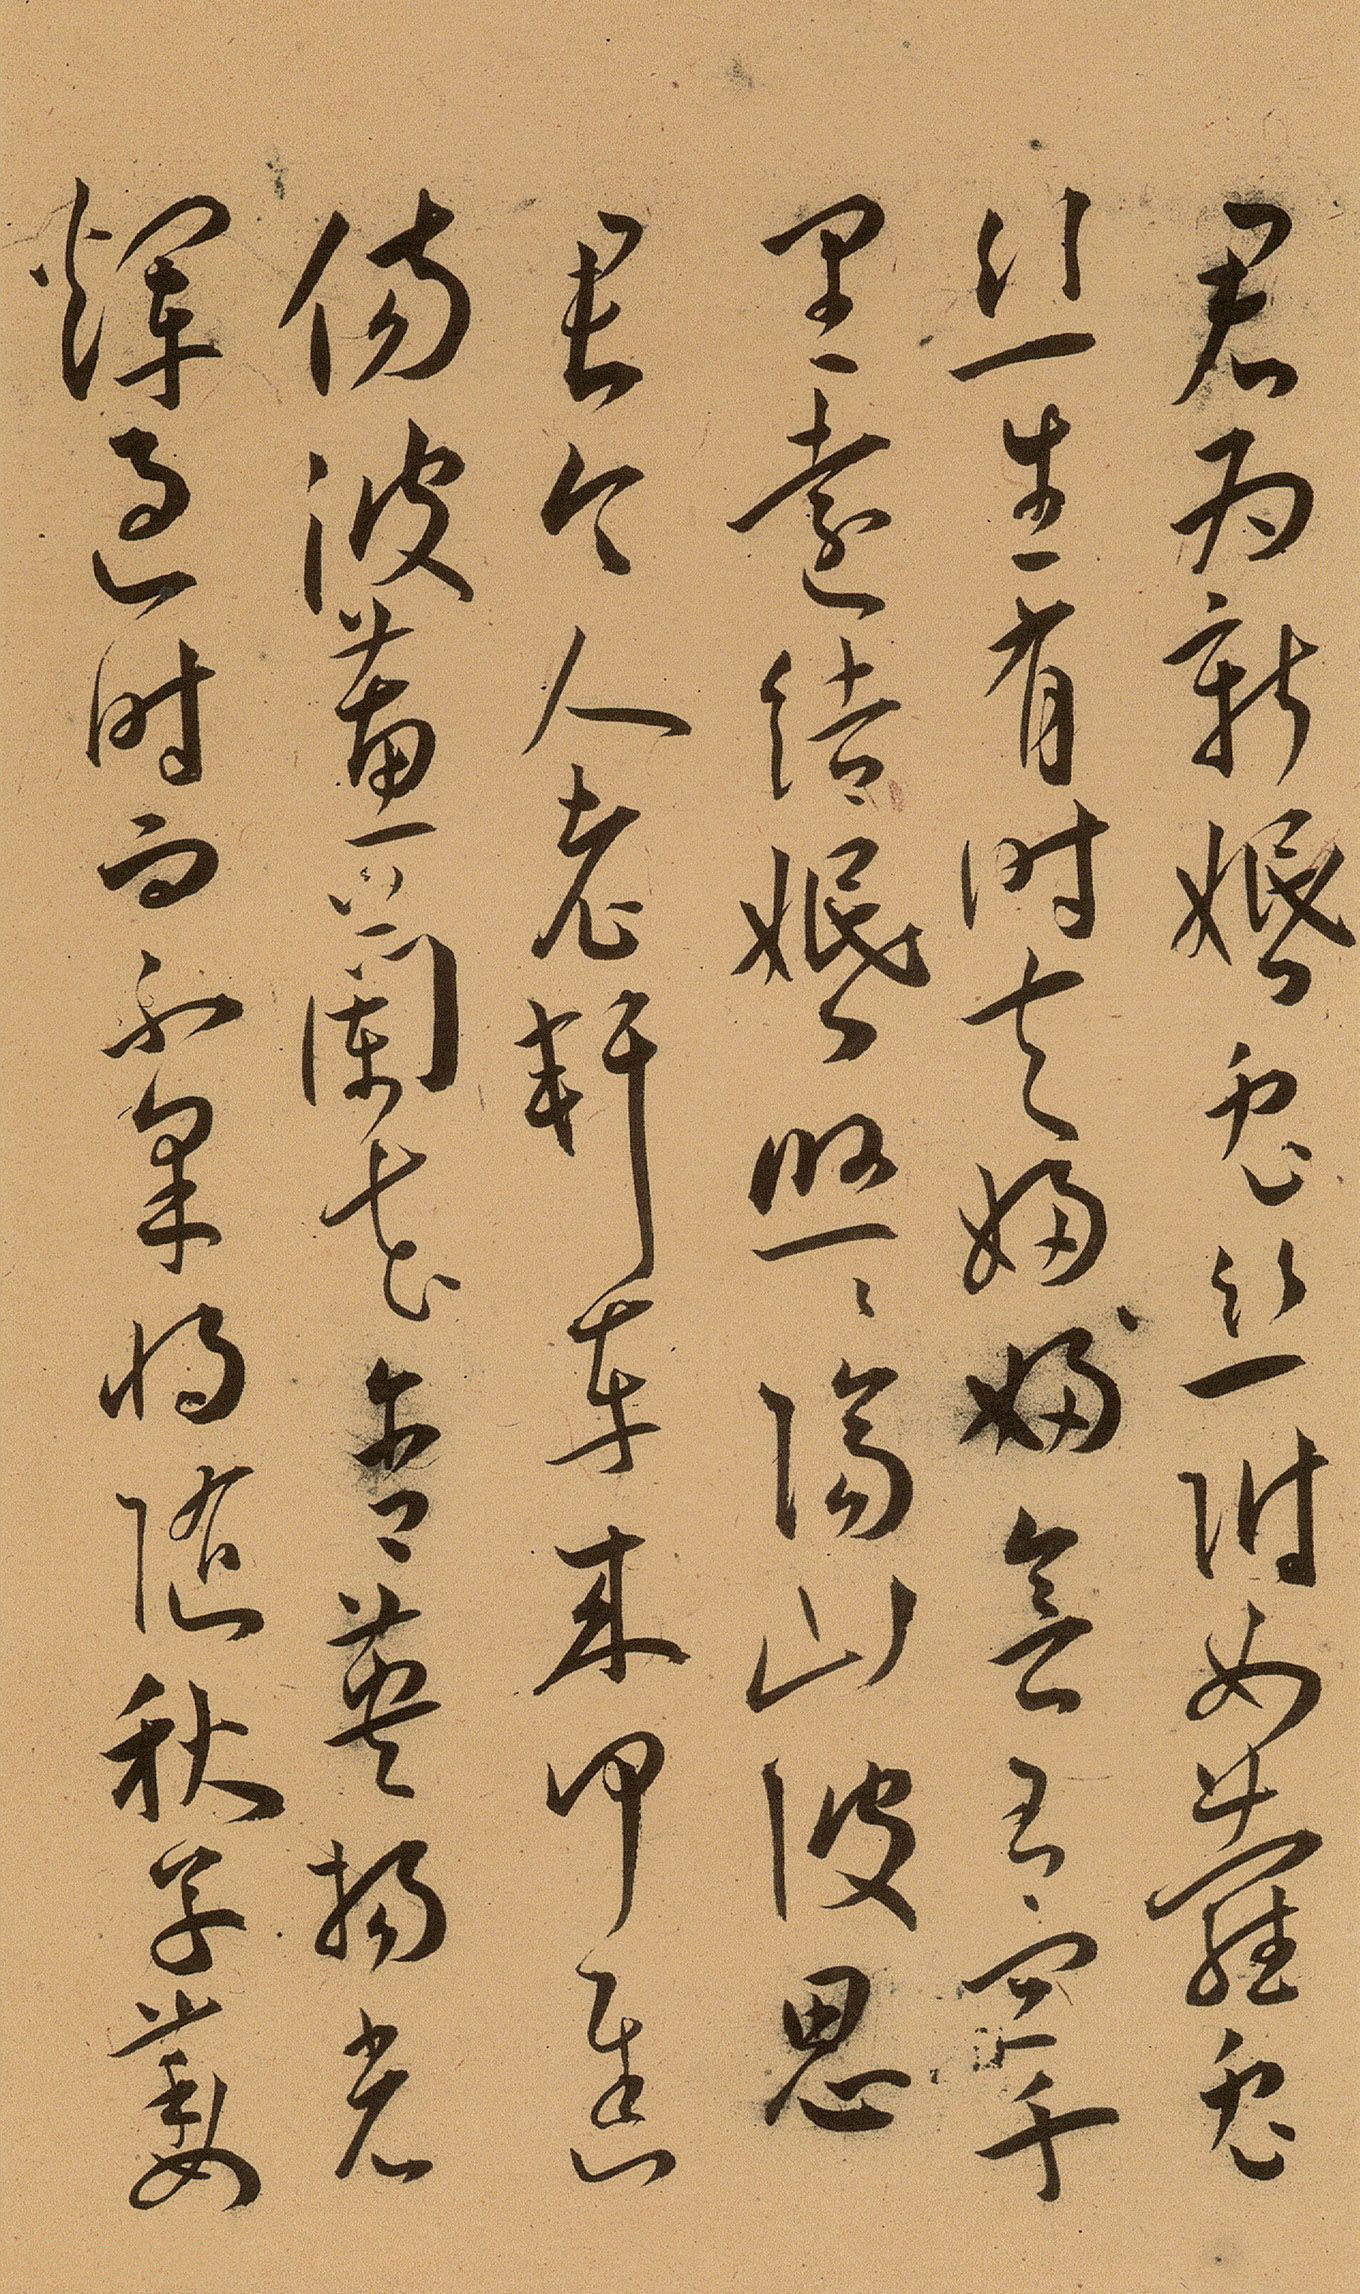 君為新婚兔絲附女蘿兔
絲生有時夫婦婦會有宜千
里遠結婚悠〻隔山陂思
君令人老軒車來何遲
傷彼蕙蘭花含英揚光
輝過時而不采將隨秋草萎